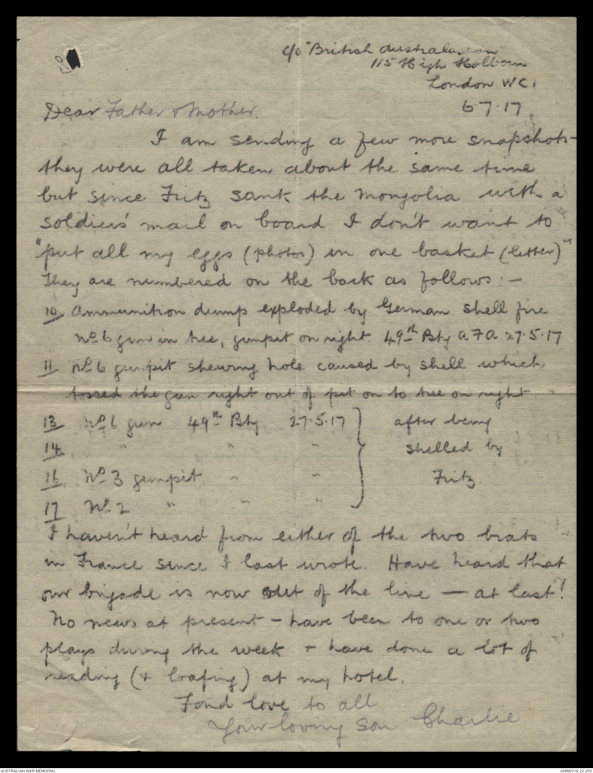 c/o "British Australasian"
115 High Holborn
London WC.
6 7.17.
Dear Father & Mother.
I am sending a few more snapshots -
they were all taken about the same time
but since Fritz sank the Mongolia with a
soldiers' mail on board I don't want to
"put all my eggs (photos) in one basket (letter)"
They are numbered on the back as follows :-
10 Ammunition dump exploded by German shell fire
No 6 gun in tree, gunpit on right 49th Bty AFA 27.5.17
11 No 6 gunpit shewing hole caused by shell which
tossed the gun right out of pit on to tree on right
13 No 6 gun 49th Bty 27.5.17 } after being
14 " " " shelled by
16 No 3 gunpit " " Fritz
17 No 2 " " "
I haven't heard from either of the two brats
in France since I last wrote. Have heard that
our brigade is now out of the line — at last!
No news at present - have been to one or two
plays during the week + have done a lot of
reading (+ loafing) at my hotel.
Fond love to all
Your loving son Charlie
AUSTRALIAN WAR MEMORIAL